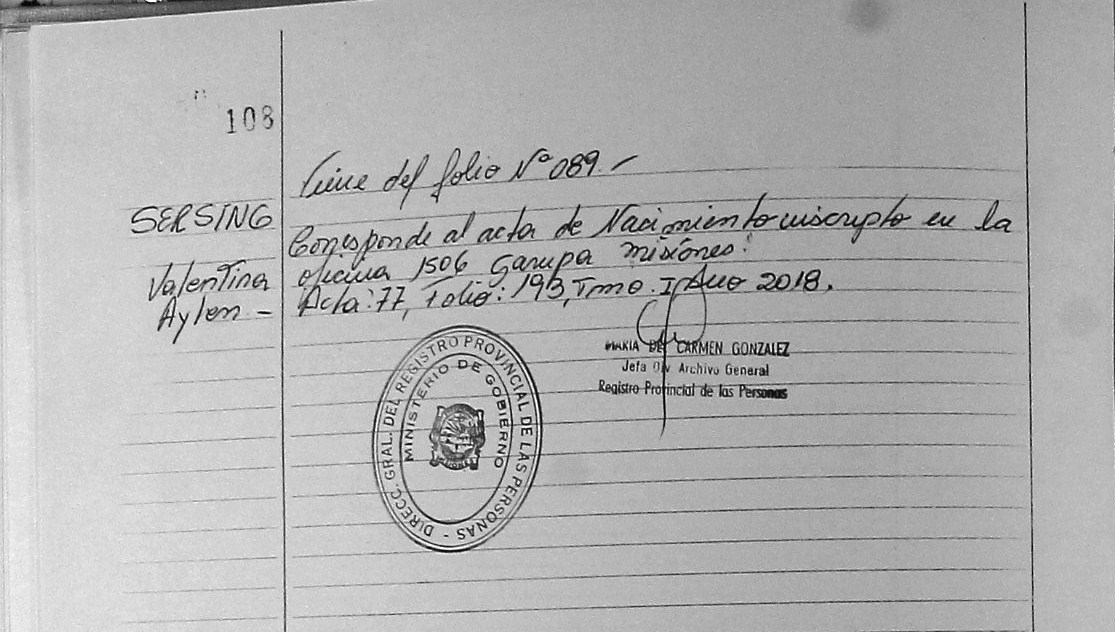 108
Viene del folio Nº 089.-
SERSING
Valentina
Aylen -
Corresponde al acta de Nacimiento inscripto en la
oficina 1506 Garupa misiones.
Acta: 77, Folio: 193, Tmo. I, Año 2018.
MARIA DEL CARMEN GONZALEZ
Jefa Div Archivo General
Registro Provincial de las Personas
DIRECC. GRAL. DEL REGISTRO PROVINCIAL DE LAS PERSONAS -
MINISTERIO DE GOBIERNO